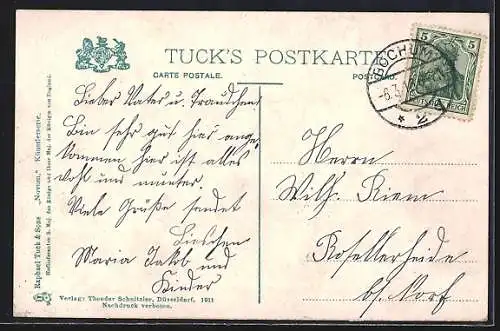 TUCK'S POSTKARTE
CARTE POSTALE.
POSTCARD.
5 5
BOCHUM
-6.3.
* 2
Lieber Vater u. Traudchen!
Bin sehr gut hier ange
kommen hier ist alles
wohl und munter.
Viele Grüße sendet
Lieschen
Maria Jakob und
Kinder
Herrn
Wilh. Kiem
Rosellerheide
b/ Norf
Raphael Tuck & Sons „Novum," Künstlerserie.
Hoflieferanten S. Maj. des Königs und Ihrer Maj. der Königin von England.
Verlag: Theodor Schnitzler, Düsseldorf. 1911
Nachdruck verboten.